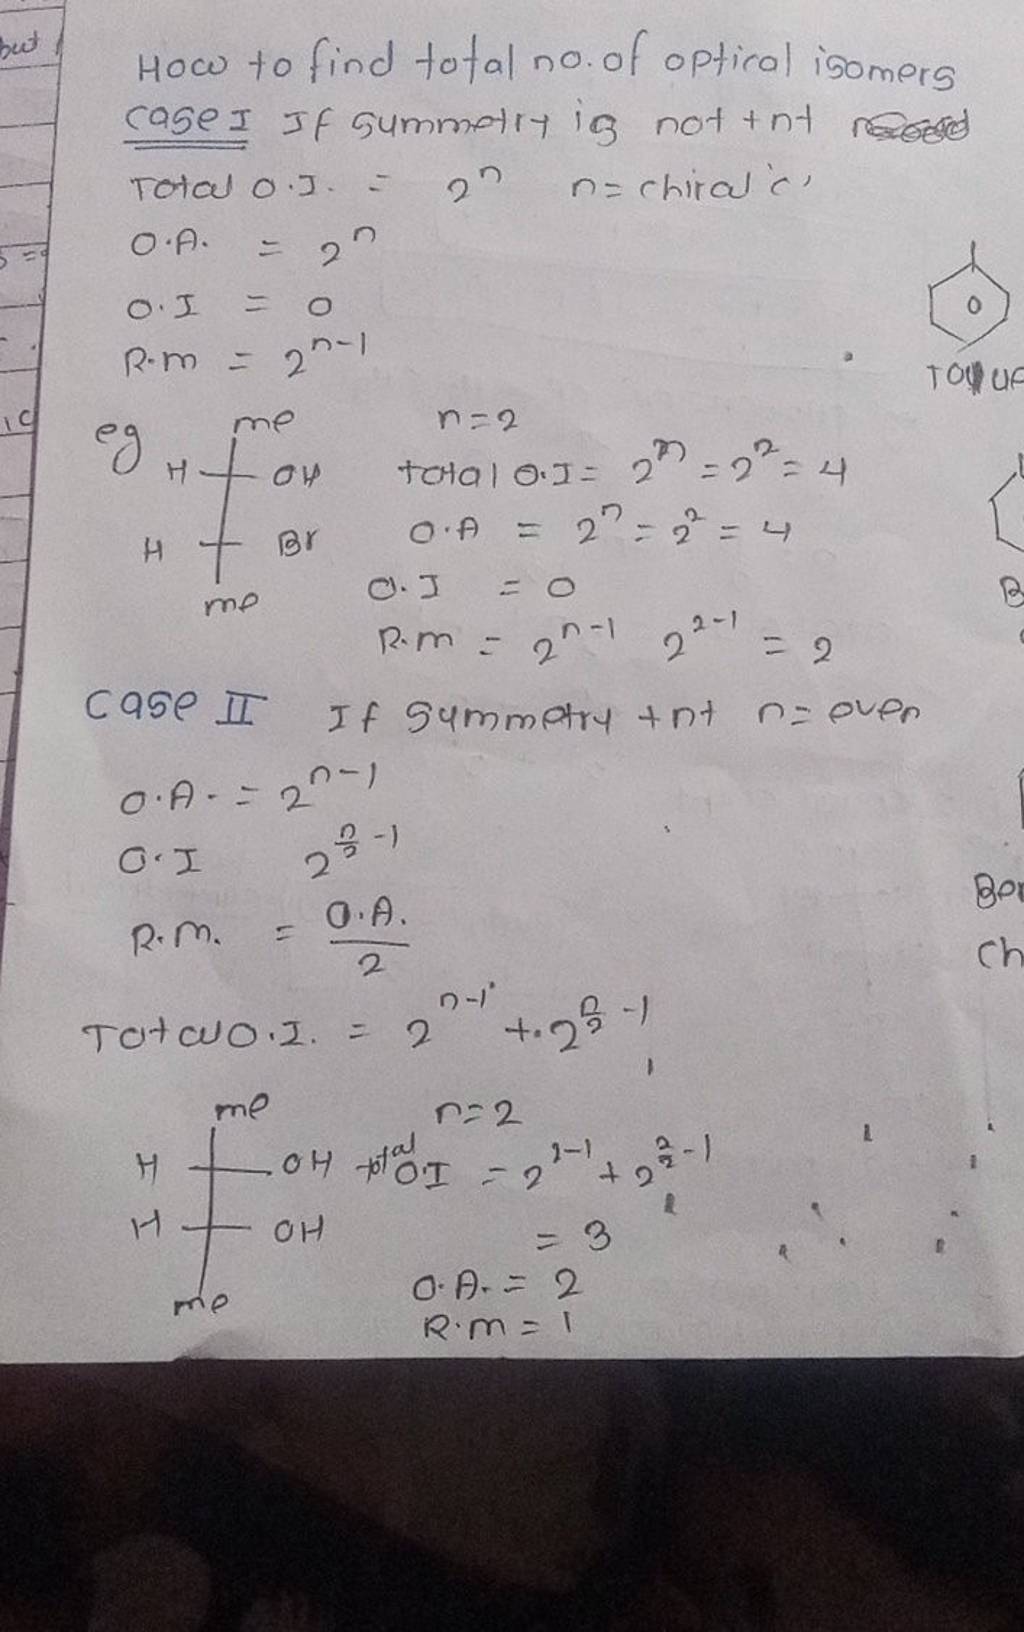 but
How to find total no. of optical isomers
Case I If symmetry is not tnt
Total O.I. = 2^n n = chiral 'c'
O.A. = 2^n
O.I = 0
R.m = 2^n-1
eg me n=2
H OH total O.I = 2^n = 2^2 = 4
H Br O.A = 2^n = 2^2 = 4
me O.I = 0
R.m = 2^n-1 2^2-1 = 2
Case II If symmetry tnt n = even
O.A. = 2^n-1
O.I 2^n/2 -1
R.M. = O.A./2
Total O.I. = 2^n-1 + 2^n/2 -1
me n=2
H OH total OI = 2^2-1 + 2^2/2 -1
H OH = 3
me O.A. = 2
R.m = 1
O
B
Ch